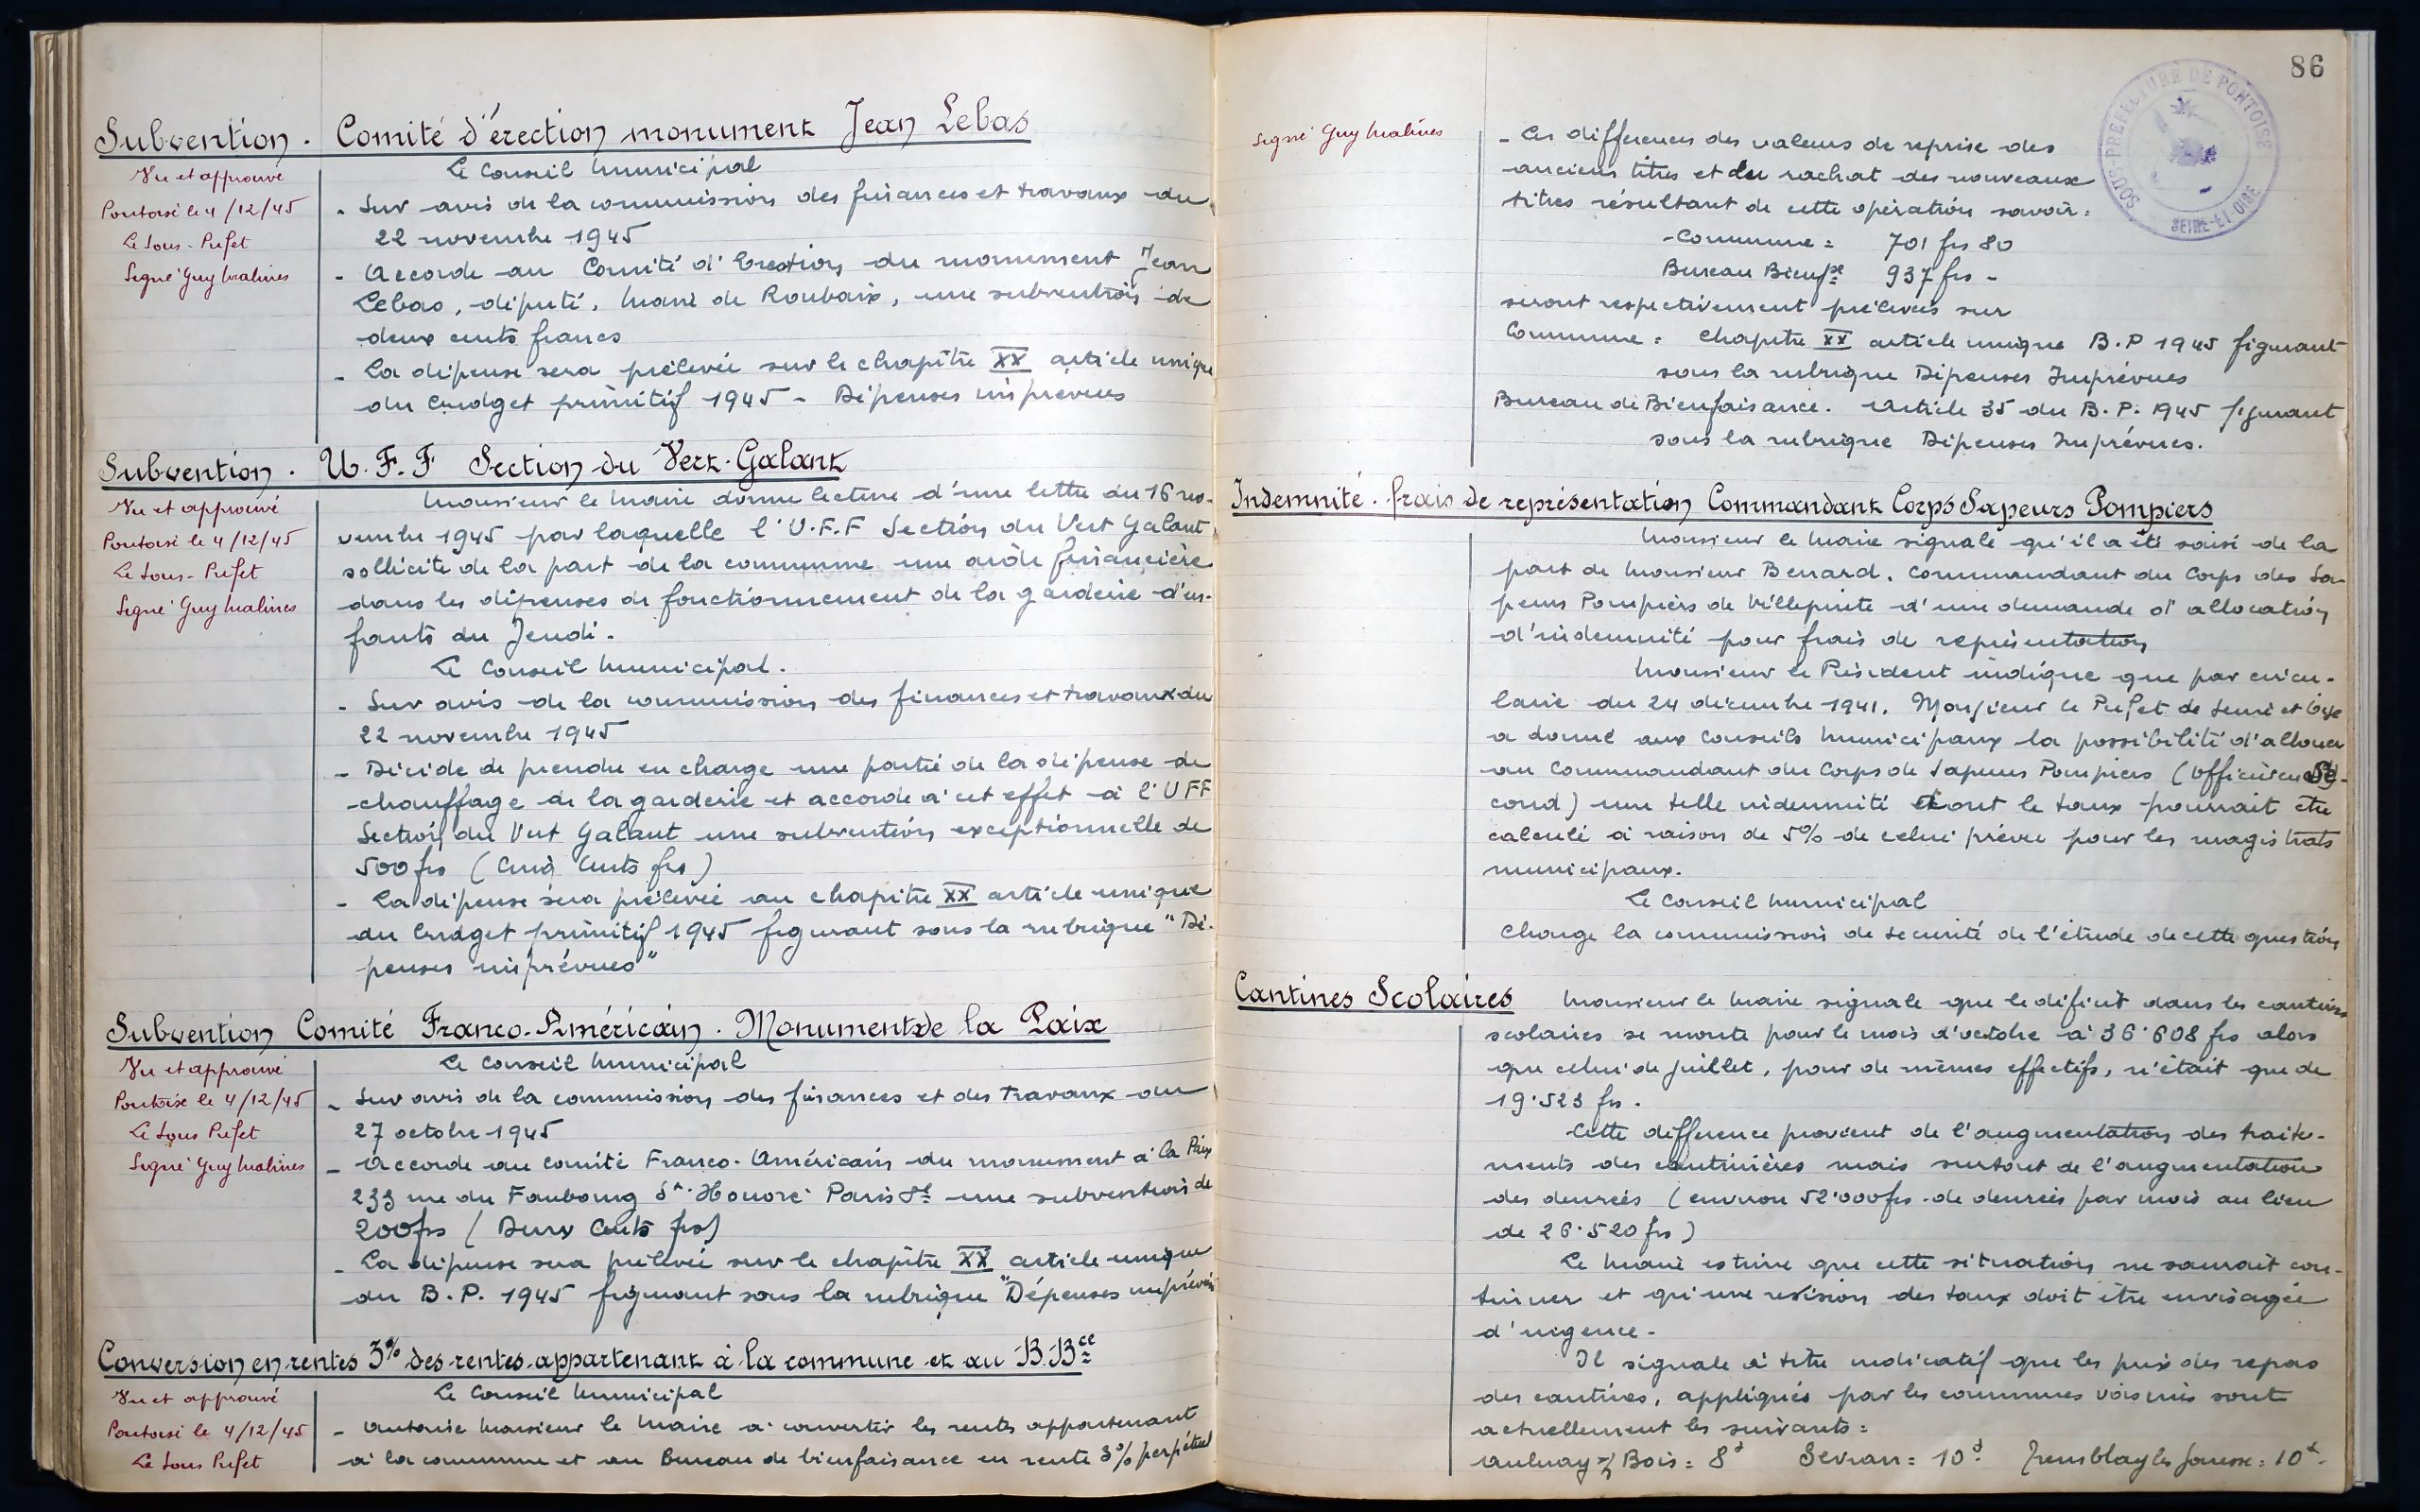 Subvention. Comité d'érection monument Jean Lebas
Vu et approuvé
Pontoise le 4/12/45
Le Sous-Préfet
Signé Guy Malines
Le Conseil Municipal
- Sur avis de la commission des finances et travaux du
22 novembre 1945
- Accorde au Comité d'Erection du monument Jean
Lebas, député, Maire de Roubaix, une subvention de
deux cents francs
- La dépense sera prélevée sur le chapitre XX article unique
du Budget primitif 1945 - Dépenses imprévues
Subvention. U.F.F Section du Vert-Galant
Vu et approuvé
Pontoise le 4/12/45
Le Sous-Préfet
Signé Guy Malines
Monsieur le Maire donne lecture d'une lettre du 16 no-
vembre 1945 par laquelle l'U.F.F Section du Vert Galant
sollicite de la part de la commune une aide financière
dans les dépenses de fonctionnement de la garderie d'en-
fants du Jeudi.
Le Conseil Municipal.
- Sur avis de la commission des finances et travaux du
22 novembre 1945
- Décide de prendre en charge une partie de la dépense de
chauffage de la garderie et accorde à cet effet à l'UFF
Section du Vert Galant une subvention exceptionnelle de
500 frs (Cinq Cents frs)
- La dépense sera prélevée au chapitre XX article unique
du Budget primitif 1945 figurant sous la rubrique "Dé-
penses imprévues"
Subvention Comité Franco-Américain. Monument de la Paix
Vu et approuvé
Pontoise le 4/12/45
Le Sous Préfet
Signé Guy Malines
Le Conseil Municipal
- Sur avis de la commission des finances et des travaux du
27 octobre 1945
- Accorde au comité Franco-Américain du monument à la Paix
233 rue du Faubourg St Honoré Paris 8e une subvention de
200 frs (Deux Cents frs)
- La dépense sera prélevée sur le chapitre XX article unique
du B.P. 1945 figurant sous la rubrique "Dépenses imprévues
Conversion en rentes 3% des rentes appartenant à la commune et au B.Bce
Vu et approuvé
Pontoise le 4/12/45
Le Sous Préfet
Le Conseil Municipal
- Autorise Monsieur le Maire à convertir les rentes appartenant
à la commune et au Bureau de bienfaisance en rente 3% perpétuel
86
SOUS-PREFECTURE DE PONTOISE
SEINE-ET-OISE
Signé Guy Malines
- Les différences des valeurs de reprise des
anciens titres et du rachat des nouveaux
titres résultant de cette opération savoir:
-Commune = 701 frs 80
Bureau Bienfce 937 frs -
seront respectivement prélevées sur
Commune: Chapitre XX article unique B.P 1945 figurant
sous la rubrique Dépenses Imprévues
Bureau de Bienfaisance. Article 35 du B.P. 1945 figurant
sous la rubrique Dépenses Imprévues.
Indemnité. frais de représentation Commandant Corps Sapeurs Pompiers
Monsieur le Maire signale qu'il a été saisi de la
part de Monsieur Benard, Commandant du Corps des Sa-
peurs Pompiers de Villepinte d'une demande d'allocation
d'indemnité pour frais de représentation
Monsieur le Président indique que par circu-
laire du 24 décembre 1941, Monsieur le Préfet de Seine et Oise
a donné aux Conseils Municipaux la possibilité d'allouer
au Commandant du Corps de Sapeurs Pompiers (officier en Se-
cond) une telle indemnité dont le taux pourrait être
calculé à raison de 5% de celui prévu pour les magistrats
municipaux.
Le Conseil Municipal
Charge la commission de sécurité de l'étude de cette question
Cantines Scolaires Monsieur le Maire signale que le déficit dans les cantines
scolaires se monte pour le mois d'octobre à 36.608 frs alors
que celui de juillet, pour de mêmes effectifs, n'était que de
19.523 frs.
Cette différence provient de l'augmentation des traite-
ments des cantinières mais surtout de l'augmentation
des denrées (environ 52.000 frs de denrées par mois au lieu
de 26.520 frs)
Le Maire estime que cette situation ne saurait con-
tinuer et qu'une révision des taux doit être envisagée
d'urgence.
Il signale à titre indicatif que les prix des repas
des cantines, appliqués par les communes voisines sont
actuellement les suivants:
Aulnay s/ Bois: 8 Sevran: 10 Tremblay les Gonesse: 10